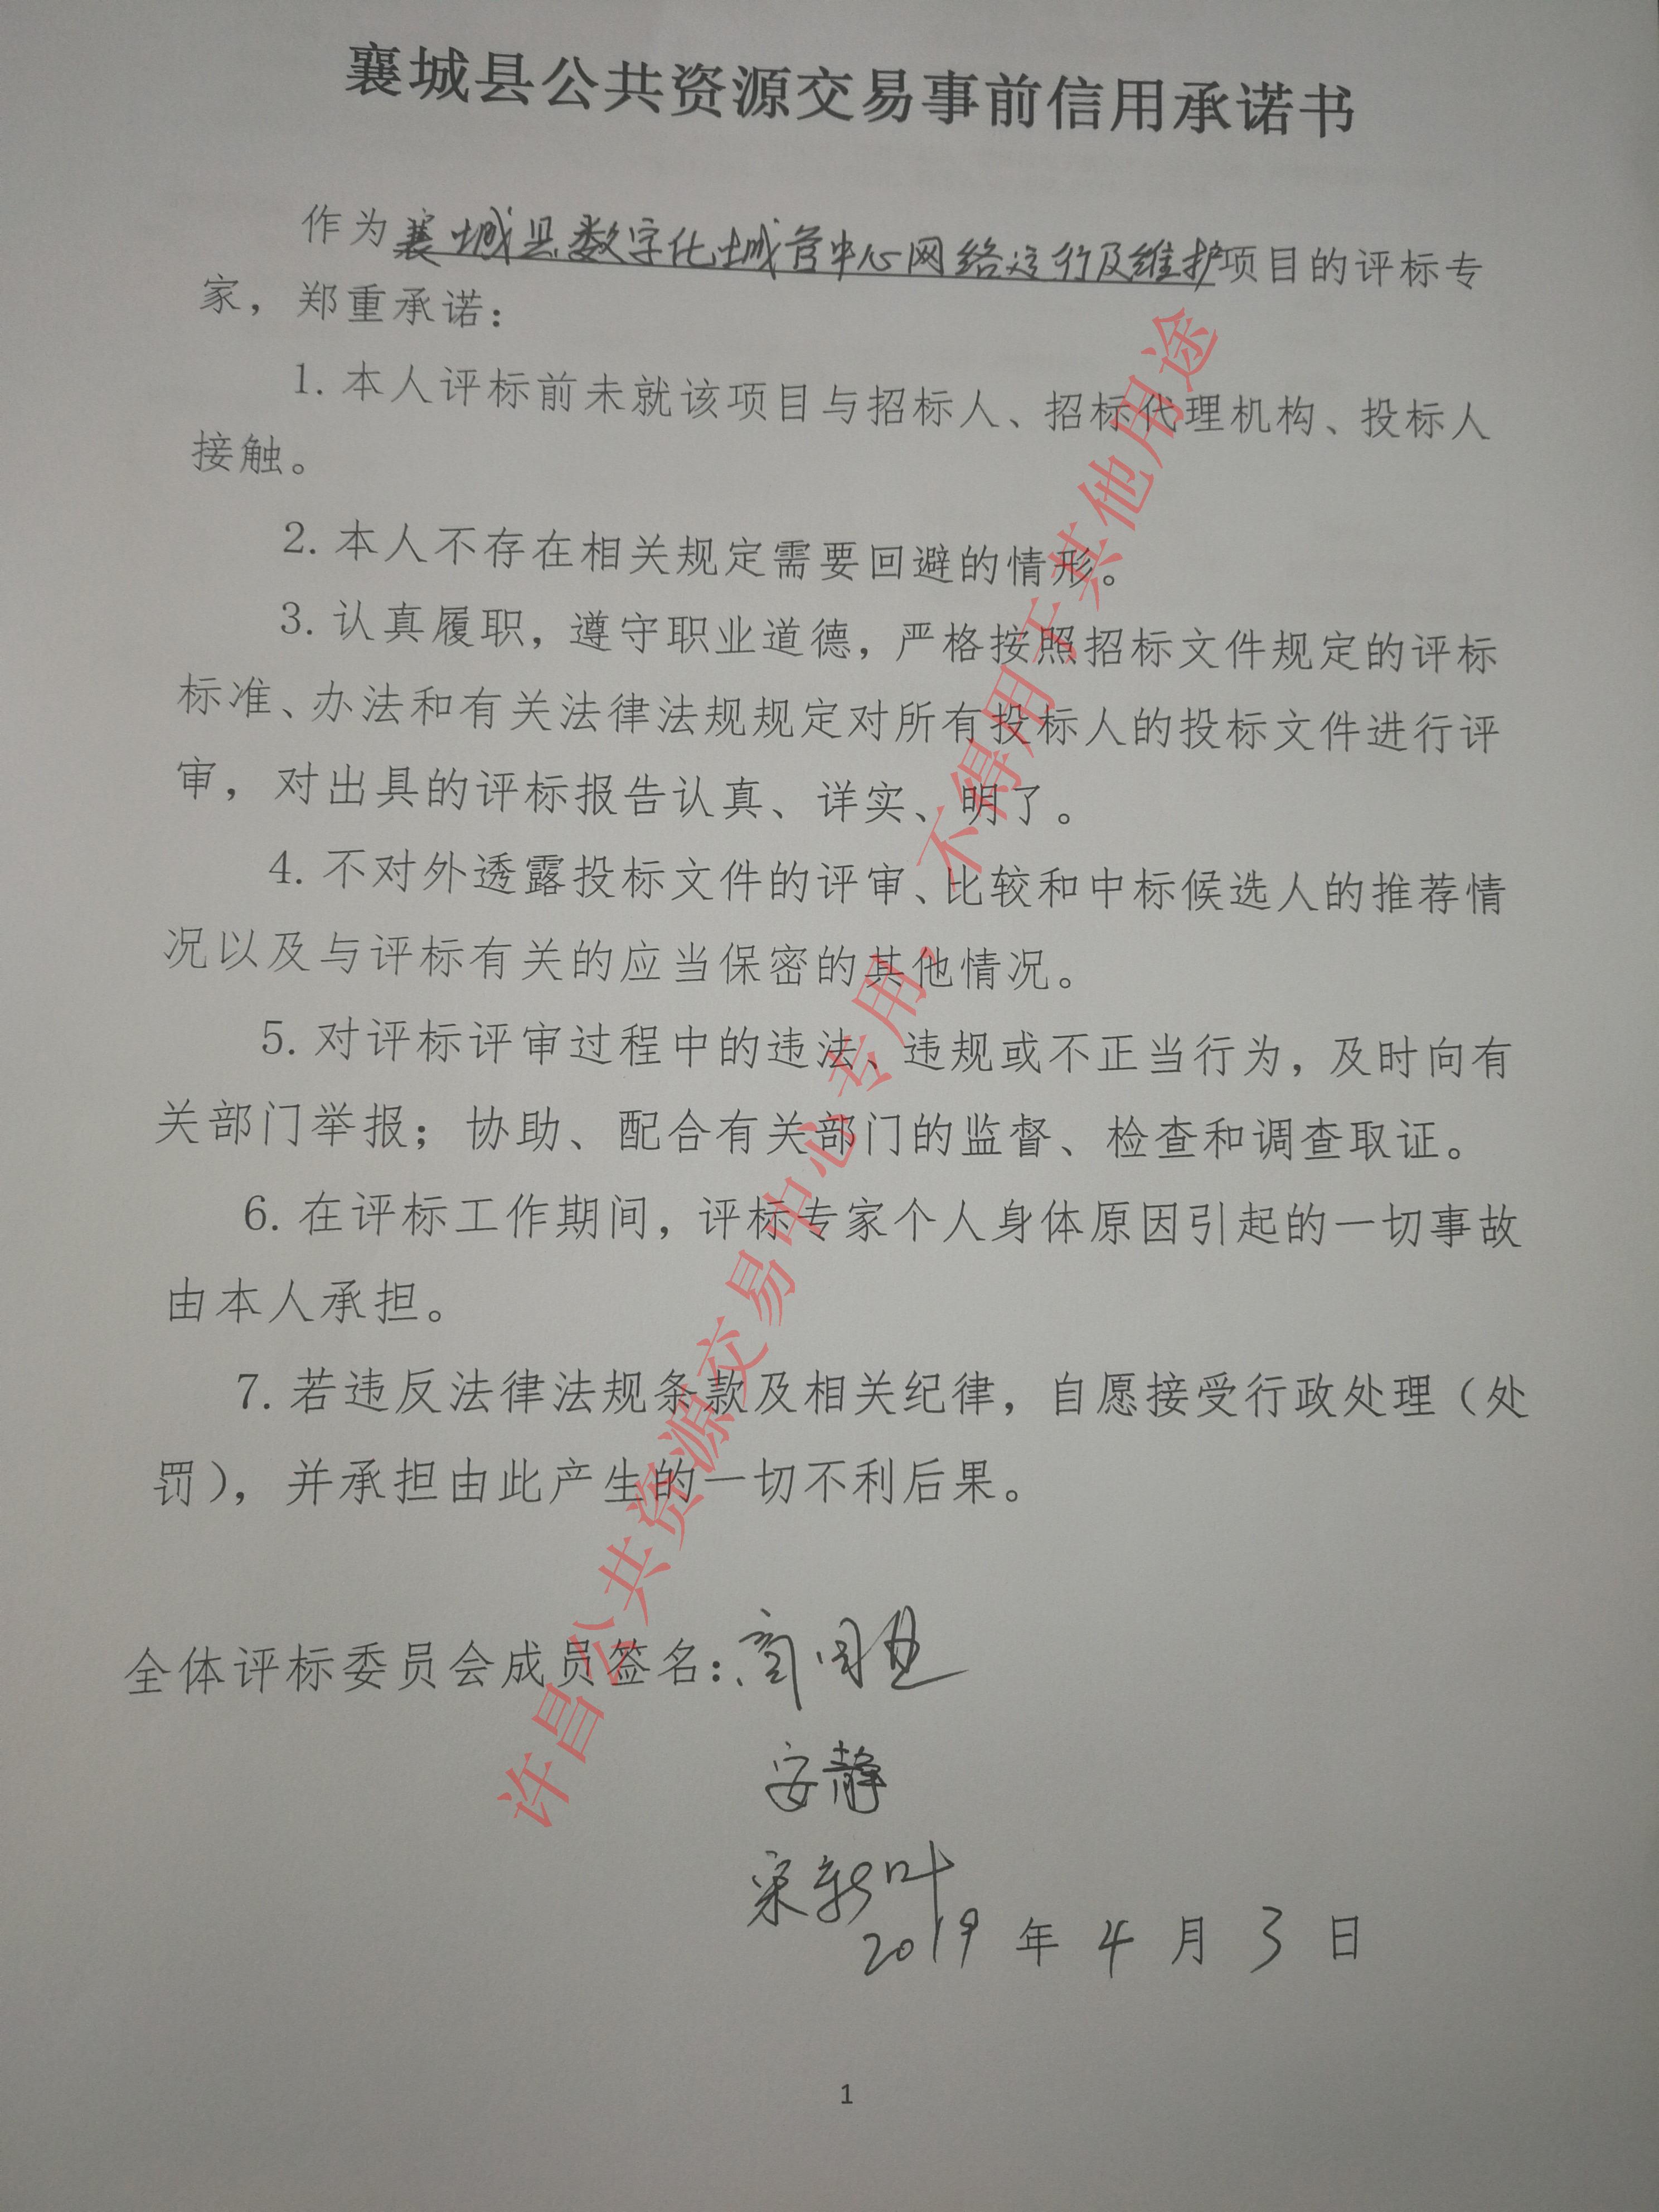 襄城县公共资源交易事前信用承诺书
作为襄城县数字化城管中心网络运行及维护项目的评标专
家，郑重承诺：
1. 本人评标前未就该项目与招标人、招标代理机构、投标人
接触。
2. 本人不存在相关规定需要回避的情形。
3. 认真履职，遵守职业道德，严格按照招标文件规定的评标
标准、办法和有关法律法规规定对所有投标人的投标文件进行评
审，对出具的评标报告认真、详实、明了。
4. 不对外透露投标文件的评审、比较和中标候选人的推荐情
况以及与评标有关的应当保密的其他情况。
5. 对评标评审过程中的违法、违规或不正当行为，及时向有
关部门举报；协助、配合有关部门的监督、检查和调查取证。
6. 在评标工作期间，评标专家个人身体原因引起的一切事故
由本人承担。
7. 若违反法律法规条款及相关纪律，自愿接受行政处理（处
罚），并承担由此产生的一切不利后果。
全体评标委员会成员签名：
安静
宋新叶
2019 年 4 月 3 日
1
许昌公共资源交易中心专用，不得用于其他用途